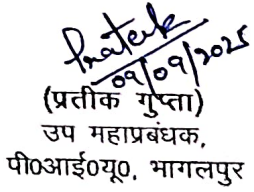 Prateek
09/09/2025
(प्रतीक गुप्ता)
उप महाप्रबंधक,
पी०आई०यू०, भागलपुर